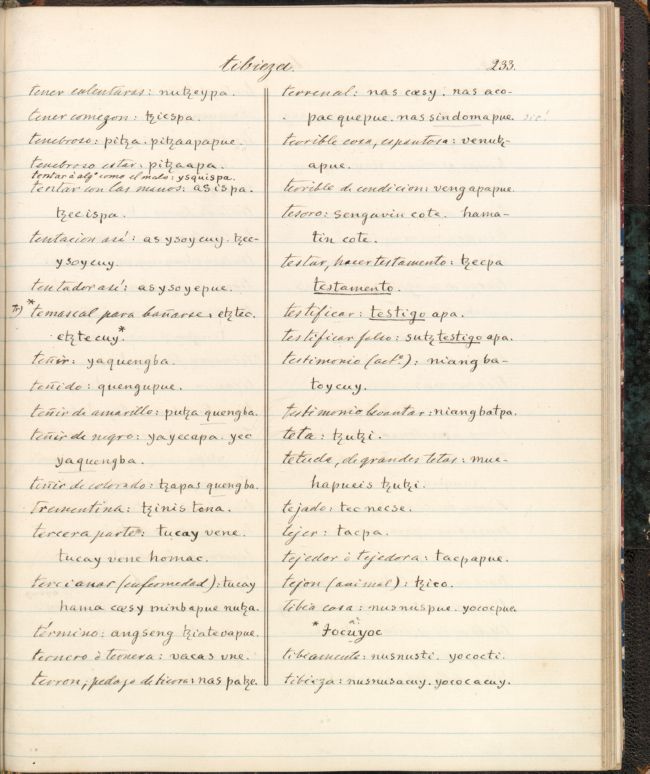 tibieza.
233.
tener calenturas: nuꜩeypa.
tener comezon: ꜩicspa.
tenebroso: pitꜩa. pitꜩaapapue.
tenebroso estar: pitꜩaapa.
tentar à algo como el malo: ysquispa.
tentar con las manos: asispa.
ꜩecispa.
tentacion así: asysoycuy. ꜩec-
ysoycuy.
tentador así: asysoyepue.
*temascal para bañarse: etꜩec.
etꜩecuy*
teñir: yaquengba.
teñido: quengupue.
teñir de amarillo: putꜩa quengba.
teñir de negro: yayecapa. yec
yaquengba.
teñir de colorado: ꜩapas quengba.
Trementina: ꜩinis tona.
tercera parte: tucay vene.
tucay vene homac.
tercianas (enfermedad): tucay
hama cæsy minbapue nuꜩa.
término: angseng ꜩiatevapue.
ternero ò ternera: vacas vne.
terron, pedazo de tierra: nas paꜩe.
terrenal: nas cæsy. nas aco-
pac quepue. nassindomapue. sic!
terrible cosa, espantosa: venuꜩ-
apue.
terrible de condicion: vengapapue.
tesoro: sengavin cote. hama-
tin cote.
testar, hacer testamento: ꜩecpa
testamento.
testificar: testigo apa.
testificar falso: sutꜩ testigo apa.
testimonio (acto.): niangba-
toycuy.
testimonio levantar: niangbatpa.
teta: ꜩutꜩi.
tetuda, de grandes tetas: mue-
hapueis ꜩutꜩi.
tejado: tec necse.
tejer: tacpa.
tejedor ò tejedora: tacpapue.
tejon (animal): ꜩico.
tibia cosa: nusnuspue. yococpue.
*Jocuyoc
tibiamente: nusnusti. yococti.
tibieza: nusnusacuy. yococacuy.